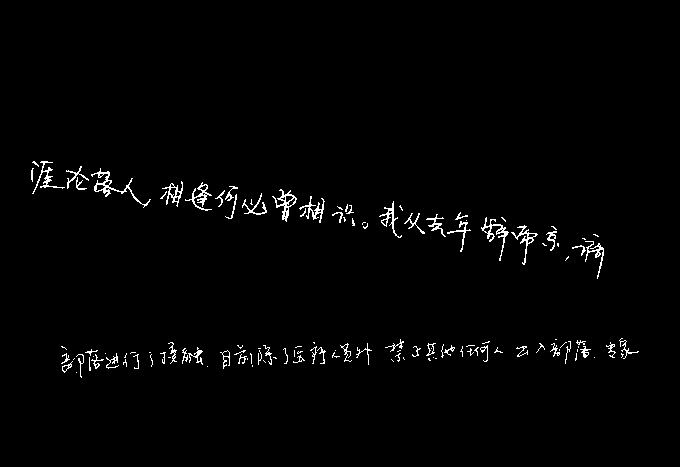 涯沦落人,相逢何必曾相识。我从去年辞帝京,谪
部落进行了接触,目前,除了医疗人员外,禁止其他任何人出入部落,专家